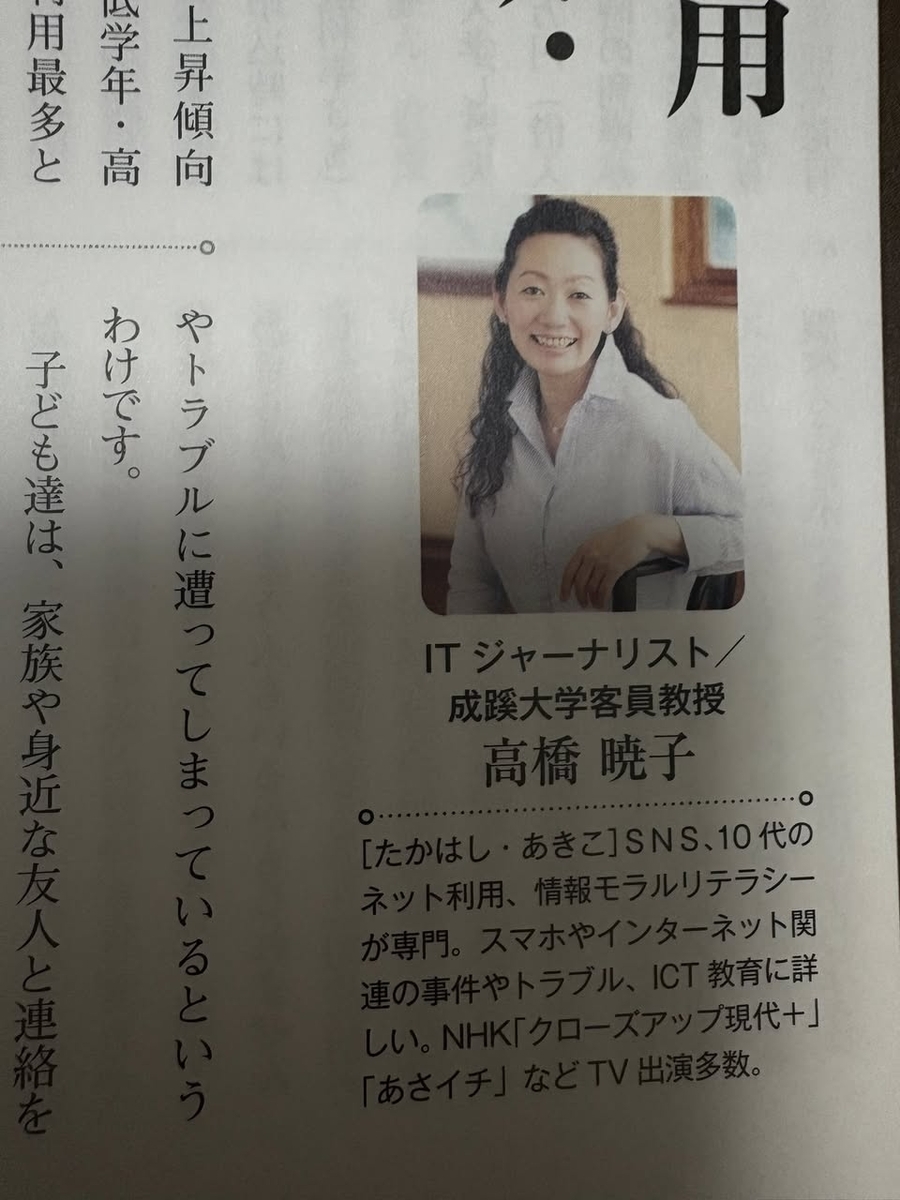 用
・
上昇傾向
低学年・高
用最多と
やトラブルに遭ってしまっているという
わけです。
子ども達は、家族や身近な友人と連絡を
ITジャーナリスト／
成蹊大学客員教授
高橋 暁子
［たかはし・あきこ］SNS、10代の
ネット利用、情報モラルリテラシー
が専門。スマホやインターネット関
連の事件やトラブル、ICT教育に詳
しい。NHK「クローズアップ現代＋」
「あさイチ」などTV出演多数。